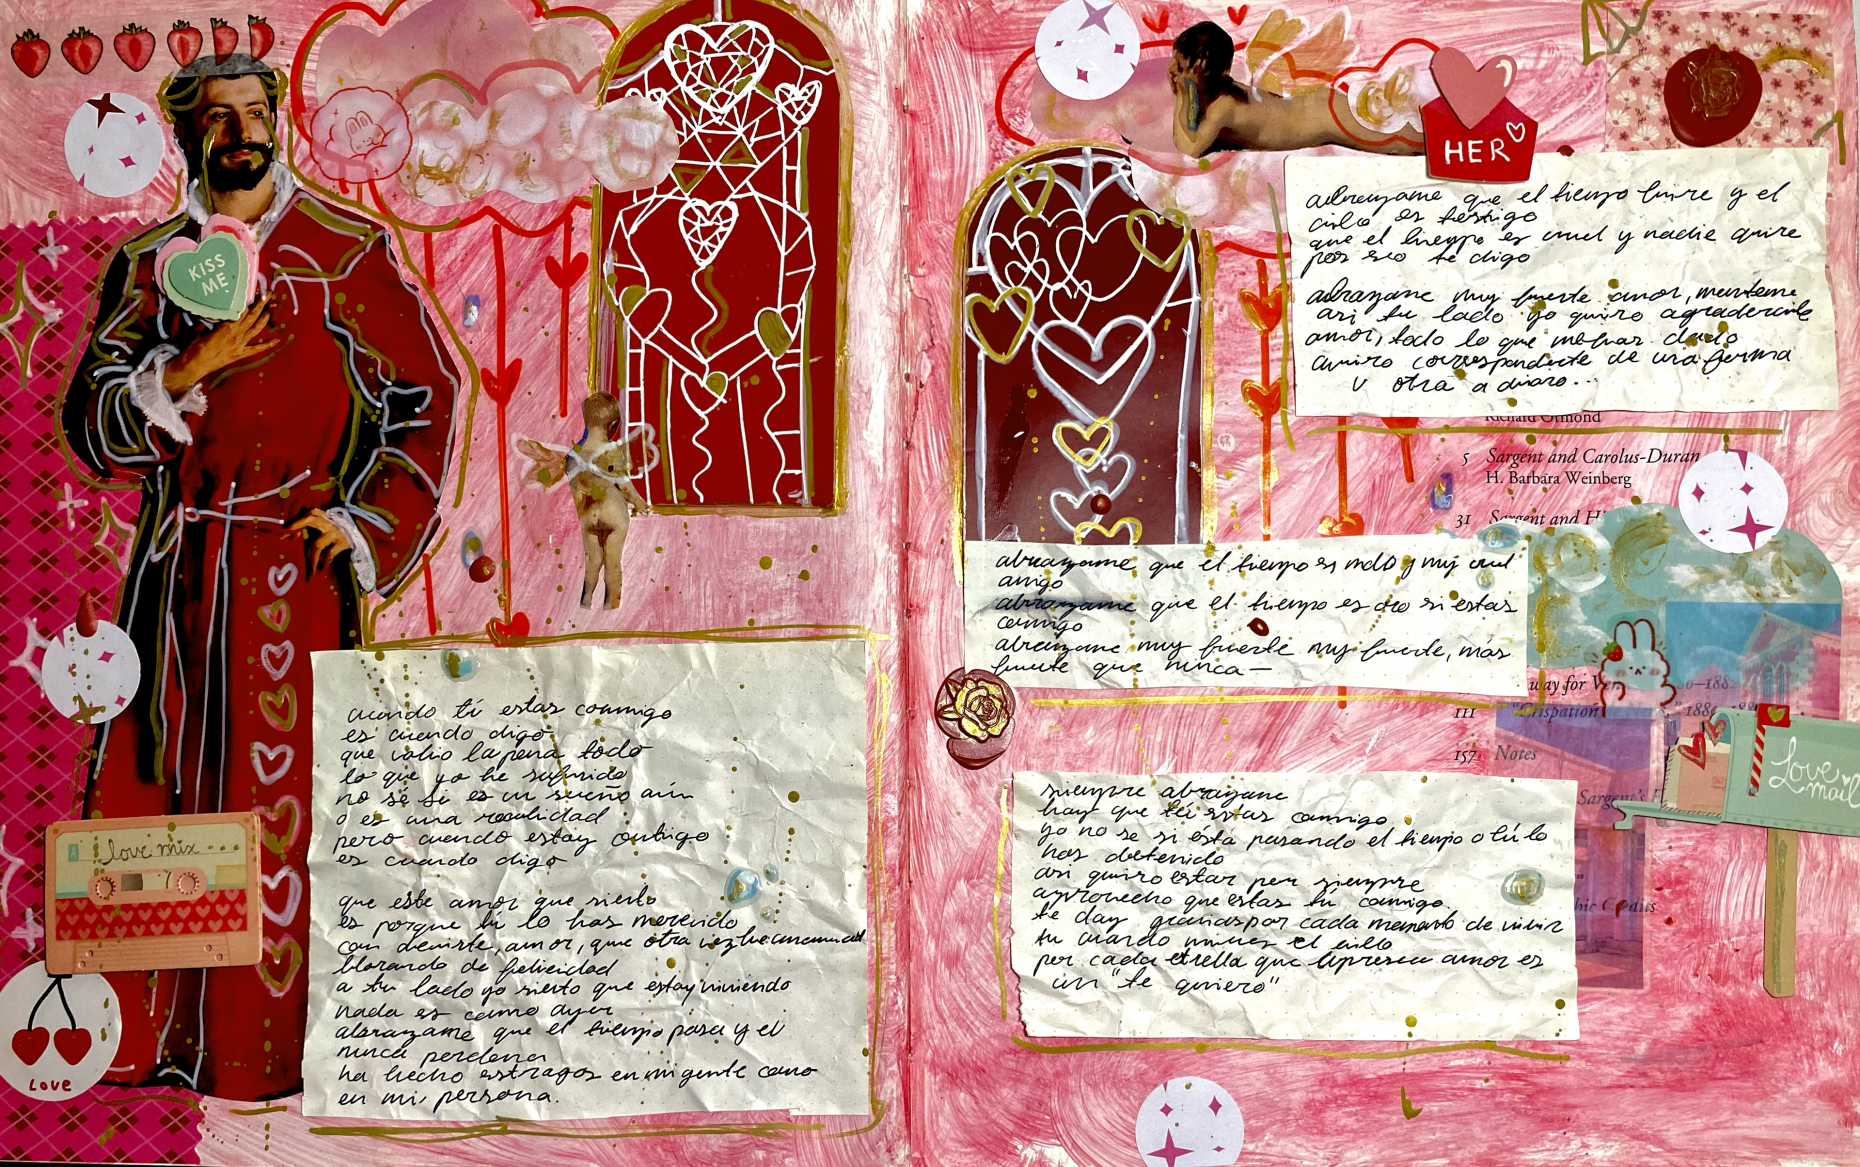 KISS
ME
love mix
LOVE
cuando tú estas conmigo
es cuando digo
que valio la pena todo
lo que yo he sufrido
no sé si es un sueño aún
o es una realidad
pero cuando estoy contigo
es cuando digo
que este amor que siento
es porque tú lo has merecido
con decirte, amor, que otra vez he amanecido
llorando de felicidad
a tu lado yo siento que estoy viviendo
nada es como ayer
abrazame que el tiempo pasa y el
nunca perdona
ha hecho estragos en mi gente como
en mi persona.
HER
abrazame que el tiempo hiere y el
cielo es testigo
que el tiempo es cruel y nadie quiere
por eso te digo
abrazame muy fuerte amor, manteme
asi tu lado yo quiero agradecerle
amor, todo lo que me has dado
quiero corresponderte de una forma
u otra a diario...
Richard Ormond
5 Sargent and Carolus-Duran
H. Barbara Weinberg
31 Sargent and Hi
abrazame que el tiempo es malo y muy cruel
amigo
abrazame que el tiempo es oro si estas
conmigo
abrazame muy fuerte muy fuerte, más
fuerte que nunca—
way for Ven
111 "Crispation
157 Notes
Sargent's
Love
mail
siempre abrazame
hoy que tú estas conmigo
yo no se si ésta pasando el tiempo o tú lo
has detenido
asi quiero estar por siempre
aprovecho que estas tú conmigo
te doy gracias por cada momento de vivir
tu cuando mires el cielo
por cada estrella que aparesca amor es
un "te quiero"